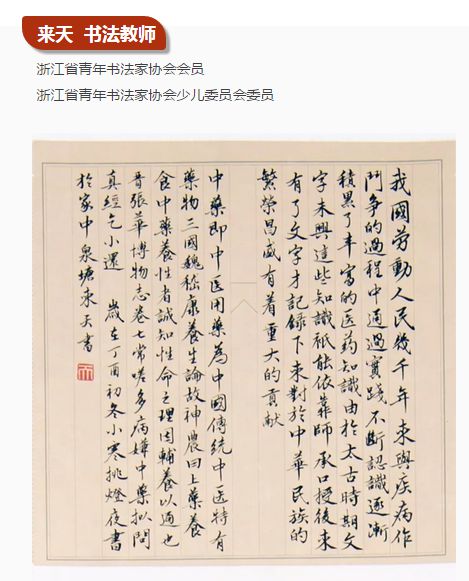 来天 书法教师
浙江省青年书法家协会会员
浙江省青年书法家协会少儿委员会委员
我國劳動人民幾千年来與疾病作
鬥争的過程中通過實踐不斷認識逐漸
積累了丰富的医药知識由於太古時期文
字未興這些知識祇能依靠師承口授後来
有了文字才記録下来對於中華民族的
繁荣昌盛有着重大的貢献
中藥即中医用藥為中國傳统中医特有
藥物三國魏嵇康養生論故神農曰上藥養
命中藥養性者誠知性命之理因輔養以通也
晋張華博物志卷七常嗟多病嫌中藥拟問
真經乞小還 歲在丁酉初冬小寒挑燈夜書
於家中泉塘来天書